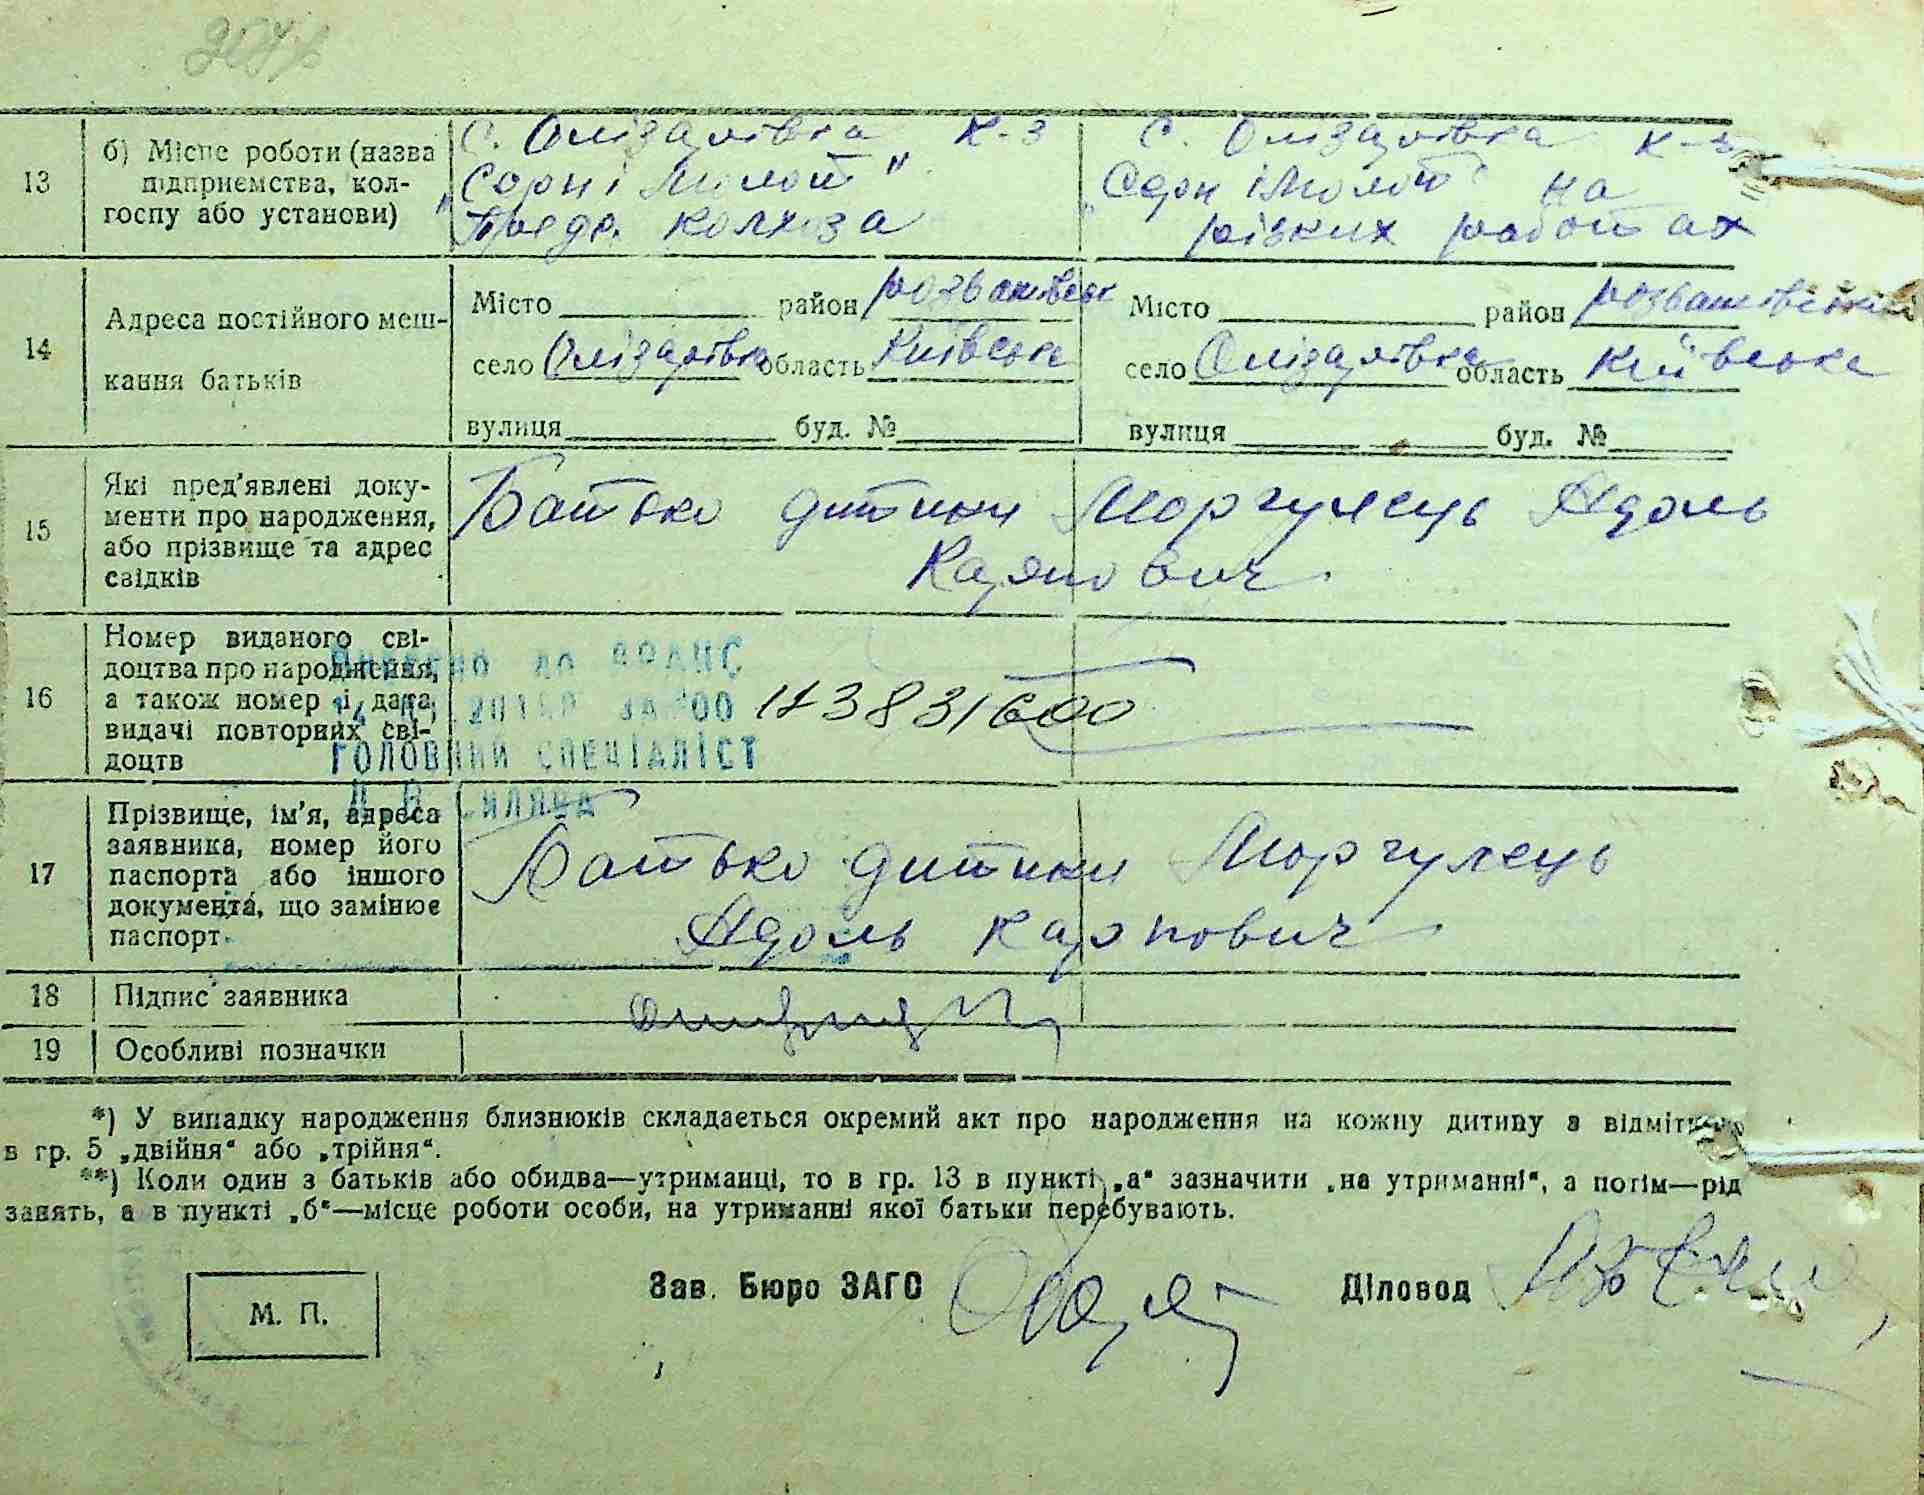 13
б) Місце роботи (назва
підприємства, кол-
госпу або установи)
с. Олізарівка к-з
"Серп і Молот"
Предс. колхоза
с. Олізарівка к-з
"Серп і Молот" на
різких работах
14
Адреса постійного меш-
кання батьків
Місто район розважівськ
село Олізарівка область Київська
вулиця буд. №
Місто район розважівський
село Олізарівка область Київська
вулиця буд. №
15
Які пред'явлені доку-
менти про народження,
або прізвище та адрес
свідків
Батько дитини Моргулець Адоль
Карпович
16
Номер виданого сві-
доцтва про народження,
а також номер і дата
видачі повторних сві-
доцтв
до ДРАЦС
ГОЛОВНИЙ СПЕЦІАЛІСТ
17
Прізвище, ім'я, адреса
заявника, номер його
паспорта або іншого
документа, що замінює
паспорт
Батько дитини Моргулець
Адоль Карпович
18
Підпис заявника
19
Особливі позначки
*) У випадку народження близнюків складається окремий акт про народження на кожну дитину з
в гр. 5 „двійня“ або „трійня“.
**) Коли один з батьків або обидва—утриманці, то в гр. 13 в пункті „а“ зазначити „на утриманні“, а потім—рід
занять, а в пункті „б“—місце роботи особи, на утриманні якої батьки перебувають.
М. П.
Зав. Бюро ЗАГС
Діловод